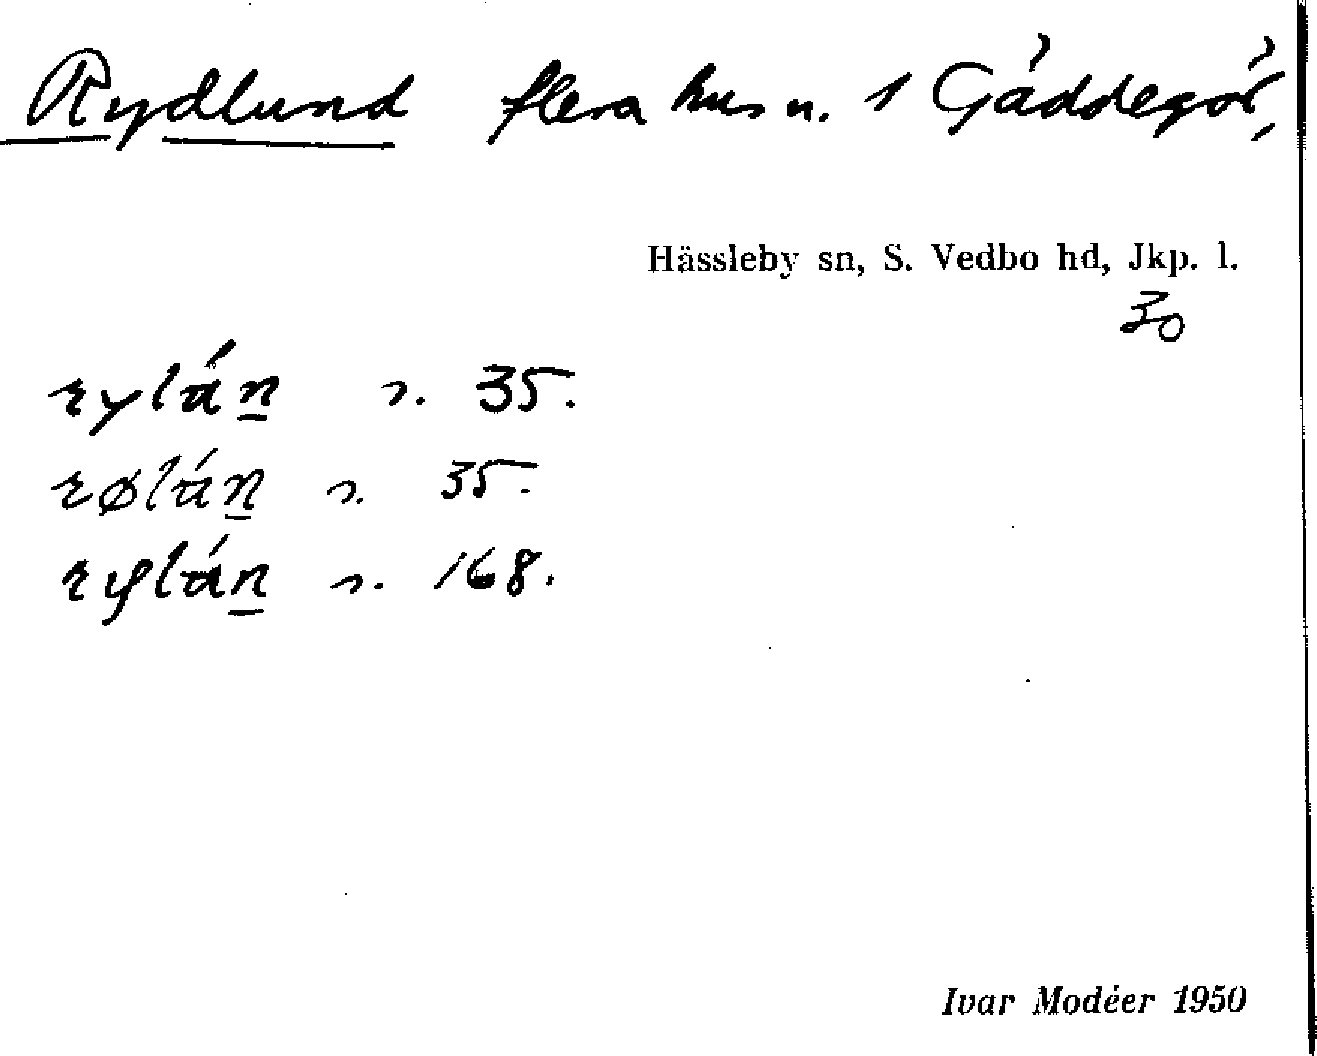 Rydlund flera hus u. 1 Gäddegöl,
Hässleby sn, S. Vedbo hd, Jkp. l.
30
rylán s. 35.
rølán s. 35.
rylán s. 168.
Ivar Modéer 1950